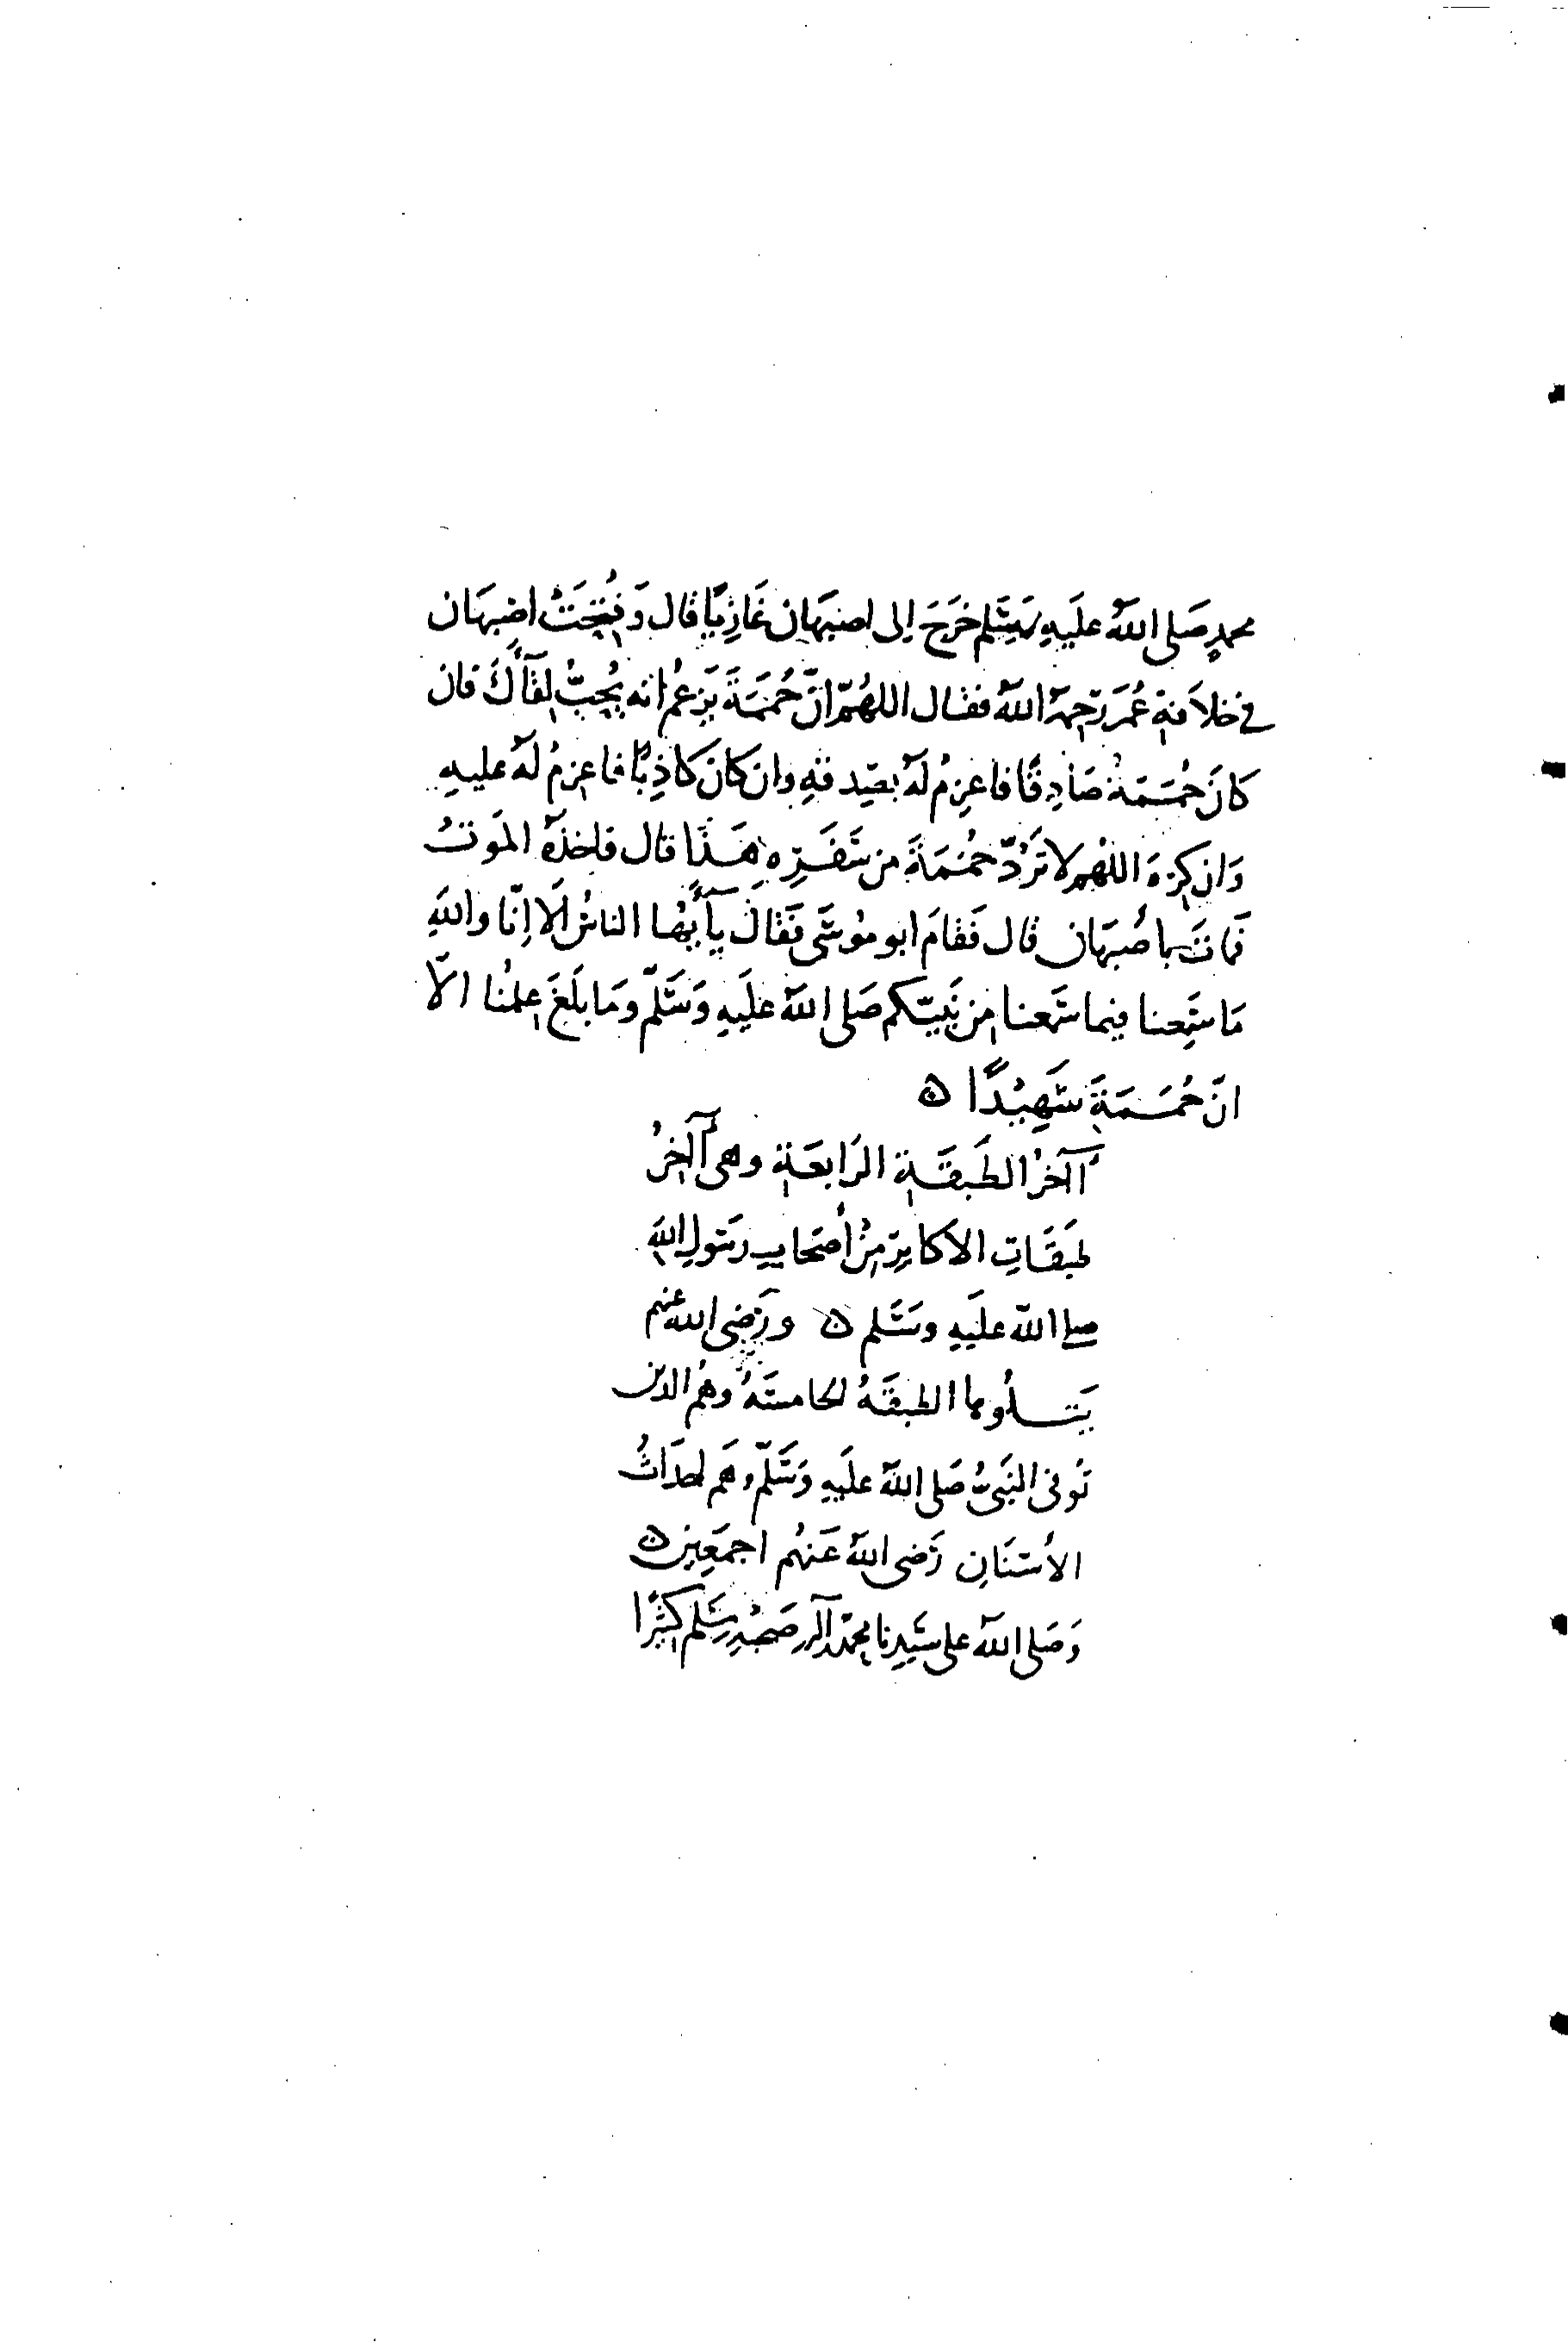 محمدٍ صَلى اللهُ عليَهِ وسَلم خرَجَ إلى اصبَهان غَازِيًا قال وَفُتِحَتْ اصْبِهَان
في خلاَفةِ عُمَرَ رَحِمهُ اللهُ فقال اللهُمّ انّ حُمَمَةَ يَزعُم انه يُحِبُّ لِقَآأكَ فان
كانَ حُمَمَةُ صَادِقًا فاعزِمْ لَهُ بصِدقهِ وان كانَ كاذِبًا فاعزِمْ لَهُ عليهِ
وَان كرِهَ اللهُم لا تَرُدّ حُمَمَةَ من سَفَرِه هَذَا قال فاخذهُ المَوتُ
فماتَ باصْبَهان قال فَقامَ ابو مُوسَى فقَالَ يآأيُّها الناسُ ألَا اِنّا واللهِ
مَا سَمِعنا فيما سَمعنا مِن نَبيّكم صَلى اللهُ علَيهِ وَسَلّم ومَا بلَغَ عِلمُنا الاّ
انّ حُمَمَةَ شَهِيْدًا ۞
آخرُ الطَبقَةِ الرَابعَةِ وهى آخِرُ
طبَقَاتِ الاكابِرِ مِنْ أصحَابِ رسَولِ اللهِ
صلى الله عليَهِ وسَلم ۞ ورَضِى الله عنهم
يَتلُوها الطبقَهُ الخامسَهُ وهُم الذين
تُوفى النبَىُّ صَلى اللهُ عليَهِ وَسَلّم وهَم احدَاثُ
الأسنَانِ رَضى اللهُ عَنهُم اجمَعِين ۞
وَصَلى اللهُ على سَيدِنا محمّد وآله وصَحْبهِ وسَلم كثيرًا